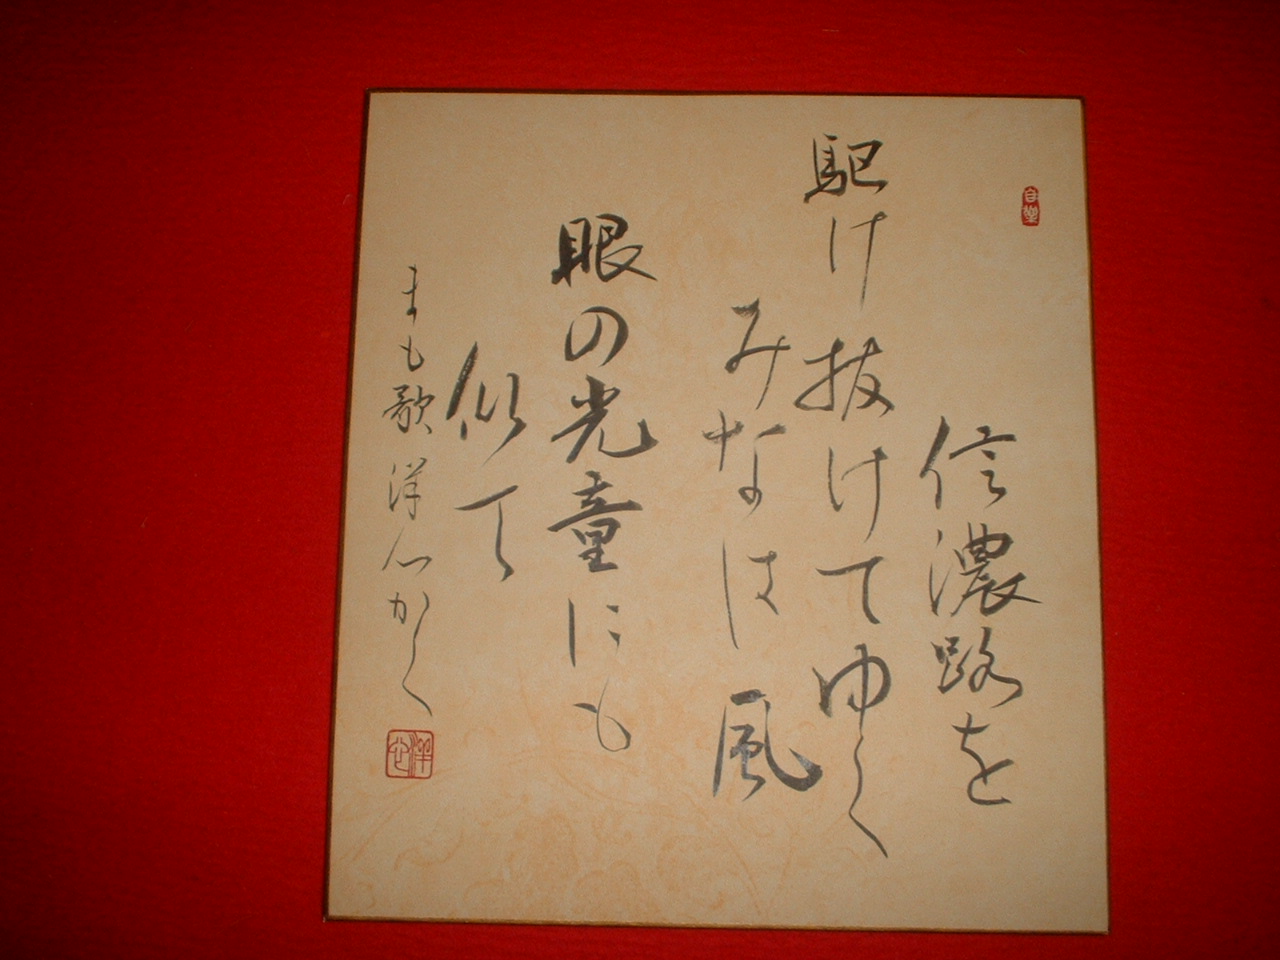 信濃路を
駈け抜けてゆく
みなは風
眼の光童にも
似て
まも歌 洋心かく
洋心